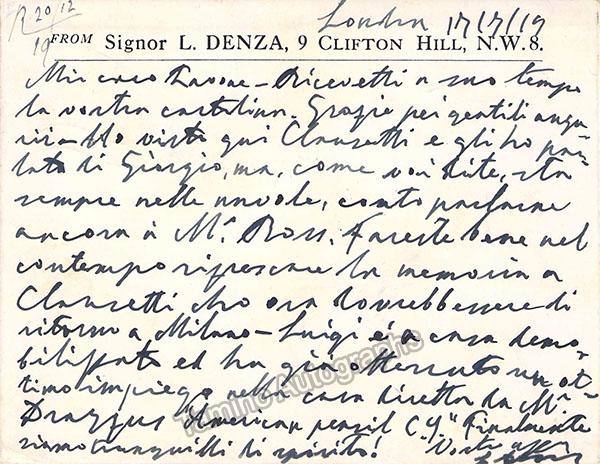 R 20/12
19
London 17/7/19
FROM Signor L. DENZA, 9 CLIFTON HILL, N.W.8.
Mio caro Pavone - Ricevetti a suo tempo
la vostra cartolina. Grazie pei gentili augu-
rii - Ho visto qui Clausetti e gli ho par-
lato di Giorgio, ma, come voi dite, sta
sempre nelle nuvole, conto parlarne
ancora a Mr. Ross. Fareste bene nel
contempo rifrescare la memoria a
Clausetti che ora dovrebb'essere di
ritorno a Milano - Luigi è a casa demo-
bilizzato ed ha già ottenuto un ot-
timo impiego nella casa diretta da Mr.
"American pencil Cy" Finalmente
siamo tranquilli di spirito! Vostro aff.
Tamino Autographs